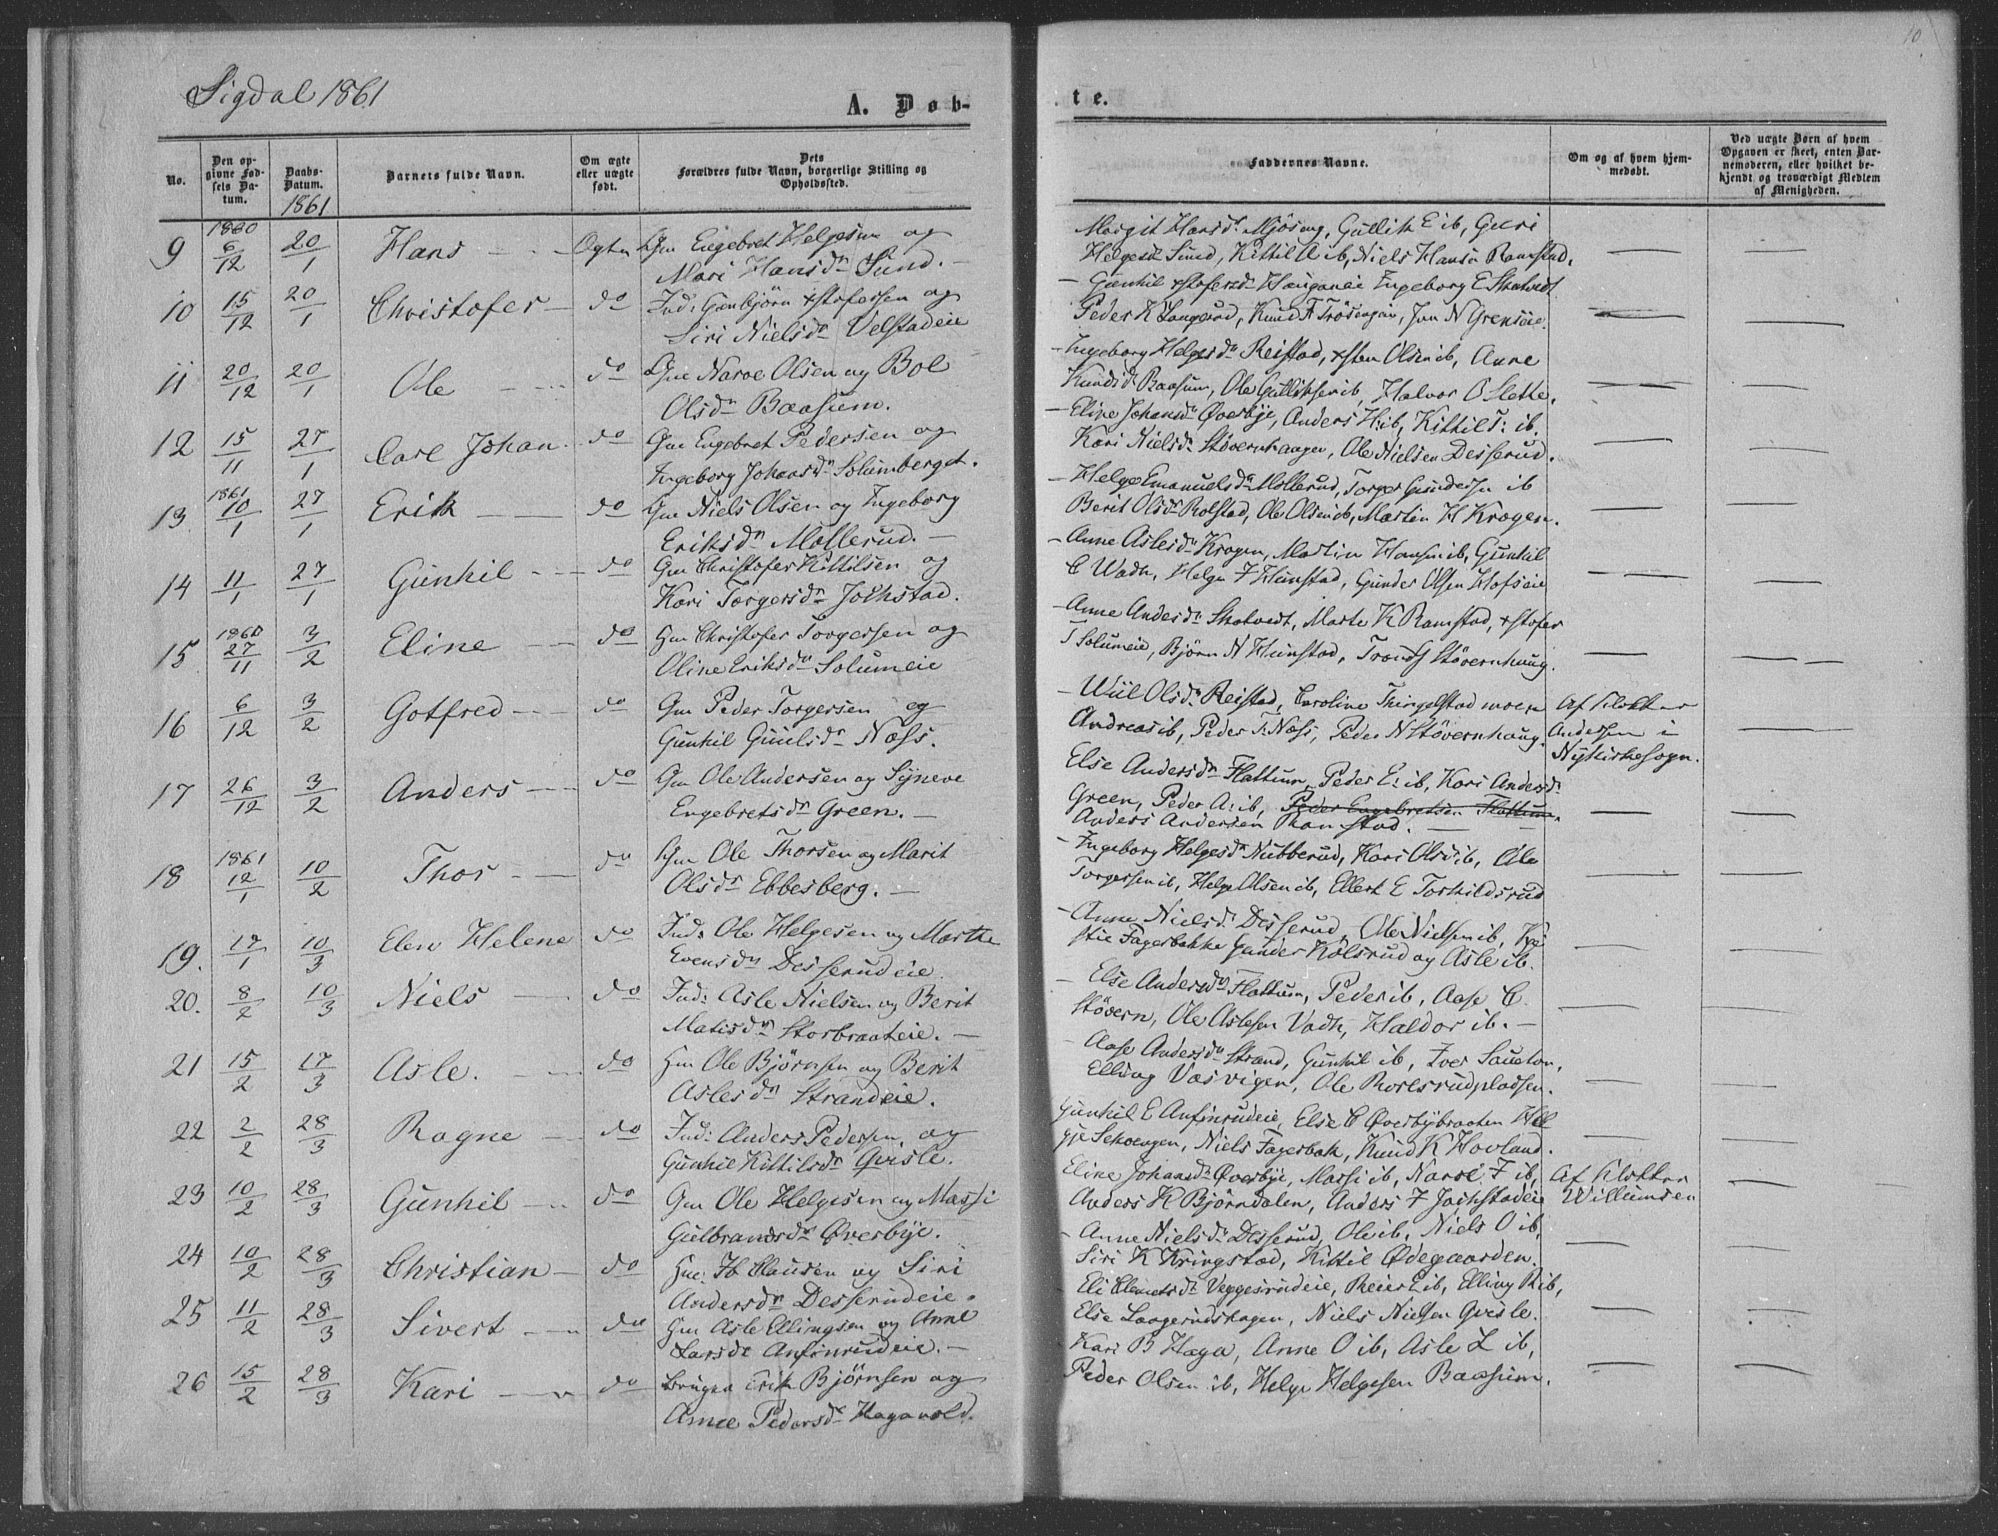 Sigdal 1861
A. Døb-
te.
10
No.
Den op-
givne Fød-
sels Da-
tum.
Daabs-
Datum.
1861
Barnets fulde Navn.
Om ægte
eller uægte
født.
Dets
Forældres fulde Navn, borgerlige Stilling og
Opholdssted.
Faddernes Navne.
Om og af hvem hjem-
medøbt.
Ved uægte Børn af hvem
Opgaven er skeet, enten Bar-
nemoderen, eller hvilket be-
kjendt og troværdigt Medlem
af Menigheden.
9 1860 6/12 20/1 Hans Ægte Gm Engebret Helgesen og
Mari Hansdr Sund.
Margit Hansdr Mjøseng, Gullik E ib, Guri
Helgesdr Sund, Kittil H ib, Niels Hansen Ramstad.
10 15/12 20/1 Christofer do Ind: Gunbjørn xstofersen og
Siri Nielsdr Velstadeie
Gunhil xstofersdr Haugeneie Ingeborg E Skatvedt
Peder K Langerud, Knud T Trøsengen, Jon N Grenseie.
11 20/12 20/1 Ole do Gm Narve Olsen og Bol
Olsdr Baasum.
Ingeborg Helgesdr Reistad, xsten Olsen ib, Anne
Knudsdr Baasum, Ole Gulliksen ib, Halvor O Slette.
12 15/11 27/1 Carl Johan do Gm Engebret Pedersen og
Ingeborg Johansdr Solumberget.
Eline Johansdr Øverbye, Anders H: ib, Kittil T: ib.
Kari Nielsdr Støvernhaugen, Ole Nielsen Desserud.
13 1861 10/1 27/1 Erik do Gm Niels Olsen og Ingeborg
Eriksdr Møllerud.
Helge Emanuelsdr Møllerud, Torger Gundersen ib
Berit Olsdr Rolstad, Ole Olsen ib, Martin H Krogen.
14 11/1 27/1 Gunhil do Gm Christofer Kittilsen og
Kari Torgersdr Jokstad.
Anne Aslesdr Krogen, Martin Hansen ib, Gunhil
C Wadh, Helge F Hunstad, Gunder Olsen Hofseie
15 1860 27/11 3/2 Eline do Gm Christofer Torgersen og
Oline Eriksdr Solumeie
Anne Andersdr Skatvedt, Marte K Ramstad, xstofer
T Solumeie, Bjørn N Hunstad, Trond S Støvernhaug.
16 6/12 3/2 Gotfred do Gm Peder Torgersen og
Gunhil Guulsdr Næss.
Wiil Olsdr Reistad, Caroline Thingelstad moen
Andreas ib, Peder T: Næss, Peder N Støvernhaug.
Af Klokker
Andersen i
Nykirkesogn.
17 26/12 3/2 Anders do Gm Ole Andersen og Syneve
Engebretsdr Green.
Else Andersdr Flattum, Peder E: ib, Kari Andersdr
Green, Peder A: ib, Peder Engebretsen Flattum.
Anders Andersen Ramstad.
18 1861 12/1 10/2 Thor do Gm Ole Thorsen og Marit
Olsdr Ebbesberg.
Ingeborg Helgesdr Nubberud, Kari Olsdr ib, Ole
Torgersen ib, Helge Olsen ib, Ellert E Torkildsrud
19. 17/1 10/3 Elen Helene do Ind: Ole Helgesen og Marthe
Evensdr Desserudeie.
Anne Nielsdr Desserud, Ole Nielsen ib, Kji
stie Fagerbakke Gunder Kolsrud og Asle ib.
20. 8/2 10/3 Niels do Ind: Asle Nielsen og Berit
Matisdr Storbraateie.
Else Andersdr Flattum, Peder ib, Aase C.
Støvern, Ole Aslesen Vadh, Haldor ib.
21 15/2 17/3 Asle. do Hm Ole Bjørnsen og Berit
Aslesdr Strandeie.
Aase Andersdr Strand, Gunhil ib, Iver
Elling Vasvigen, Ole Rorlsrudpladsen.
22 2/2 28/3 Ragne do Ind: Anders Pedersen, og
Gunhil Kittilsdr Qvisle.
Gunhil E Anfinrudeie, Else C Øverbybraaten Hel
gje Sekvengen, Niels Fagerbak, Knud K Hovland.
23 10/2 28/3 Gunhil do Gm Ole Helgesen og Massi
Gulbrandsdr Øverbye.
Eline Johansdr Øverbye, Massi ib, Narve F ib,
Anders K Bjørndalen, Anders F Jokstadeie
Af Klokker
Willumsen
24 10/2 28/3 Christian do Hm: Ib Clausen og Siri
Andersdr Desserudeie.
Anne Nielsdr Desserud, Ole ib, Niels O ib,
Siri K Kringstad, Kittil Ødegaarden.
25 11/2 28/3 Sivert do Hm Asle Ellingsen og Anne
Larsdr Anfinrudeie.
Eli Clemetsdr Veggesrudeie, Reier E ib, Elling R ib,
Else Langerudshagen, Niels Nielsen Qvisle.
26 15/2 28/3 Kari do Bruger Erik Bjørnsen og
Anne Pedersdr Hagavold.
Kari B Haga, Anne O ib, Asle L ib,
Peder Olsen ib, Helge Helgesen Baasum.